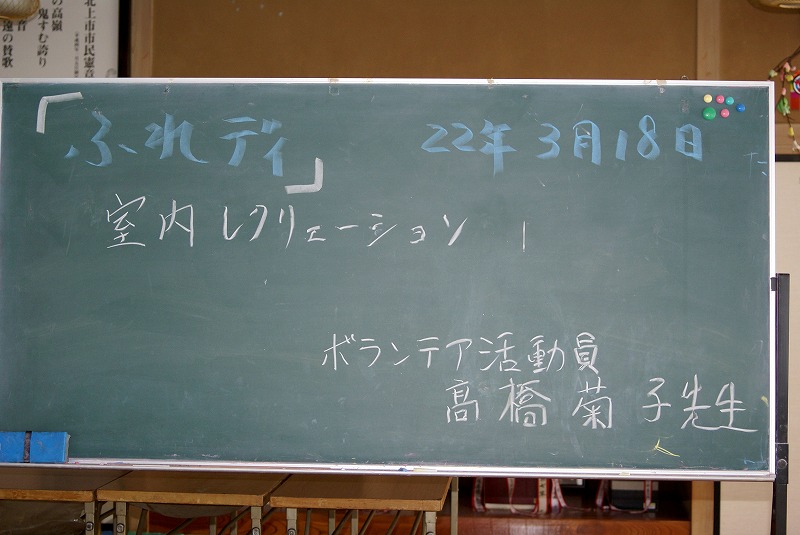 北上市市民憲章
の高嶺
鬼すむ誇り
音
遠の賛歌
「ふれデイ」 22年3月18日
室内レクリェーション
ボランテア活動員
髙橋菊子先生